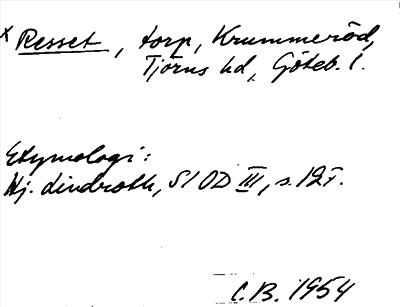 x Resset, torp, Krummeröd,
Tjörns hd, Göteb. l.
Etymologi:
Hj. Lindroth, SIOD III, s. 12 f.
C.B. 1954